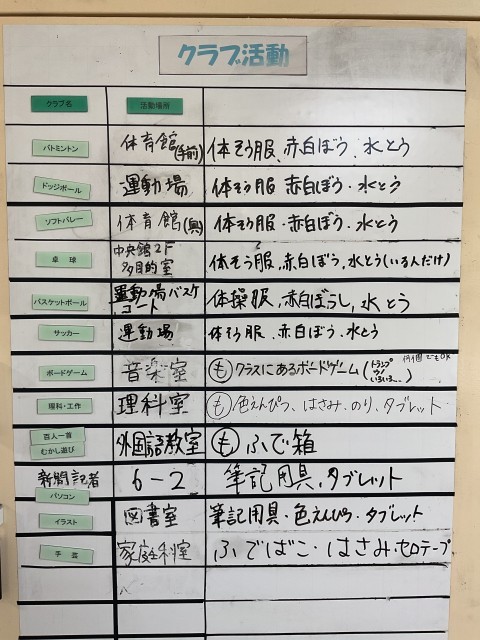 クラブ活動
クラブ名 活動場所
バトミントン 体育館(手前) 体そう服、赤白ぼう、水とう
ドッジボール 運動場 体そう服 赤白ぼう・水とう
ソフトバレー 体育館(奥) 体そう服・赤白ぼう・水とう
卓球 中央館2F 多目的室 体そう服,赤白ぼう,水とう(いる人だけ)
バスケットボール 運動場バスケコート 体操服,赤白ぼうし,水とう
サッカー 運動場 体そう服、赤白ぼう、水とう
ボードゲーム 音楽室 も クラスにあるボードゲーム(トランプ 何個でもOK
理科・工作 理科室 も 色えんぴつ、はさみ、のり、タブレット
百人一首 むかし遊び 外国語教室 も ふで箱
新聞記者 6-2 筆記用具、タブレット
パソコン
イラスト 図書室 筆記用具・色えんぴつ・タブレット
手芸 家庭科室 ふでばこ・はさみ・セロテープ